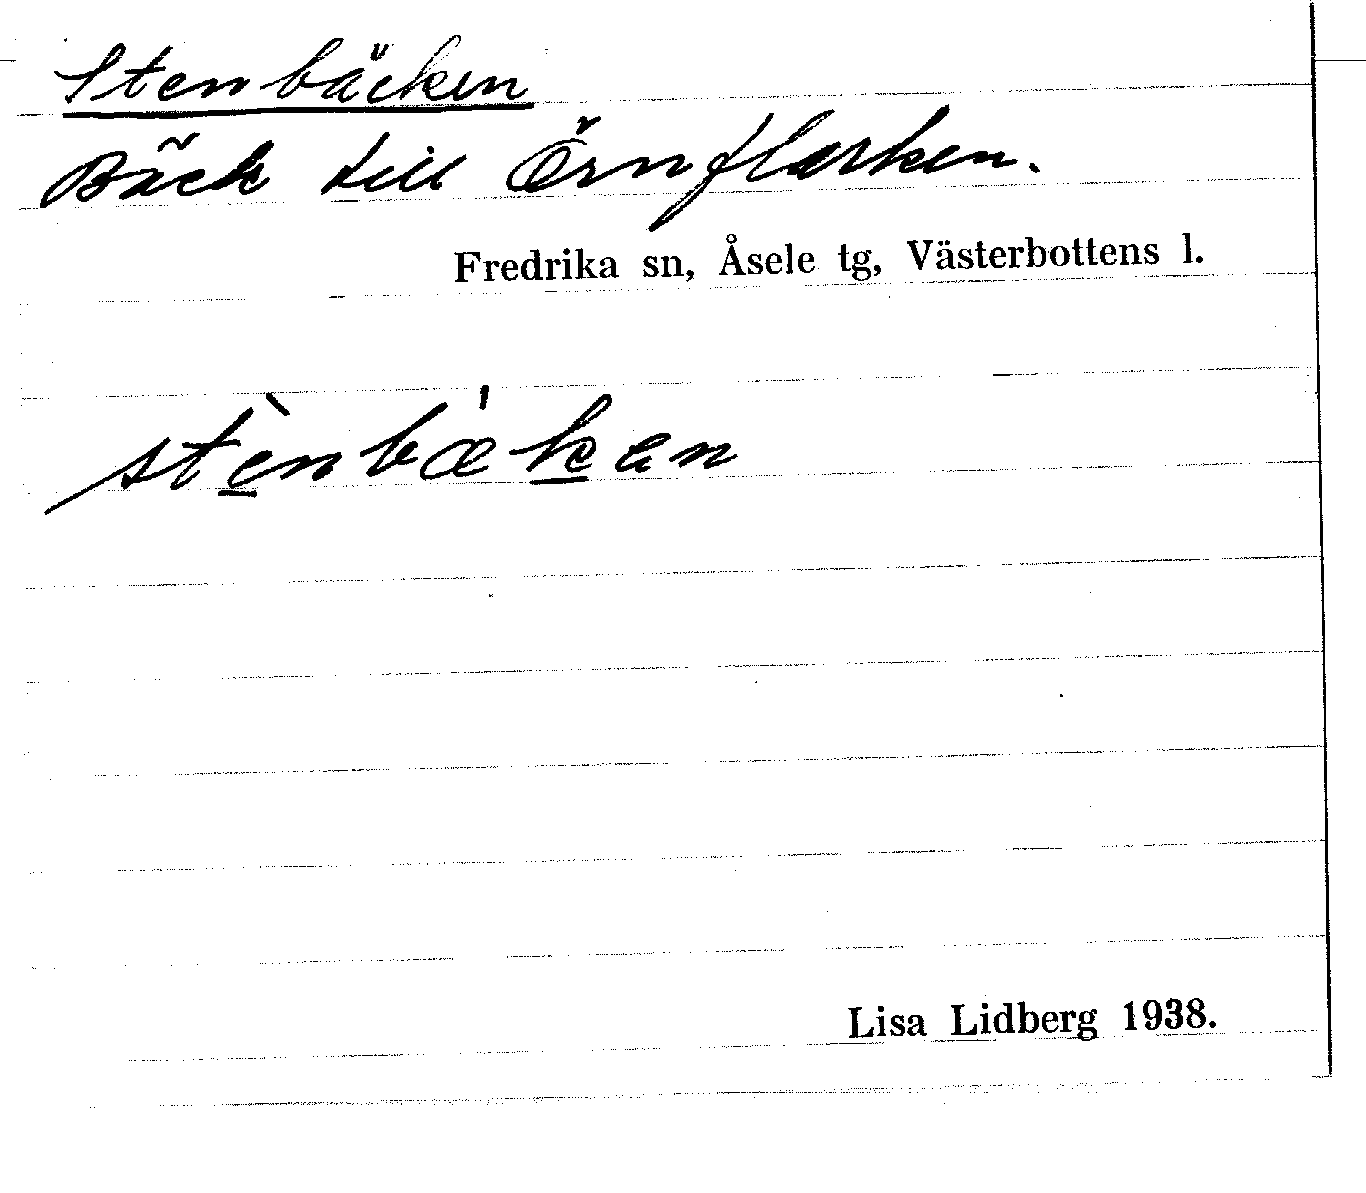 Stenbäcken
Bäck till Örnflarken.
Fredrika sn, Åsele tg, Västerbottens l.
stè̲nbæ̍k̲en
Lisa Lidberg 1938.